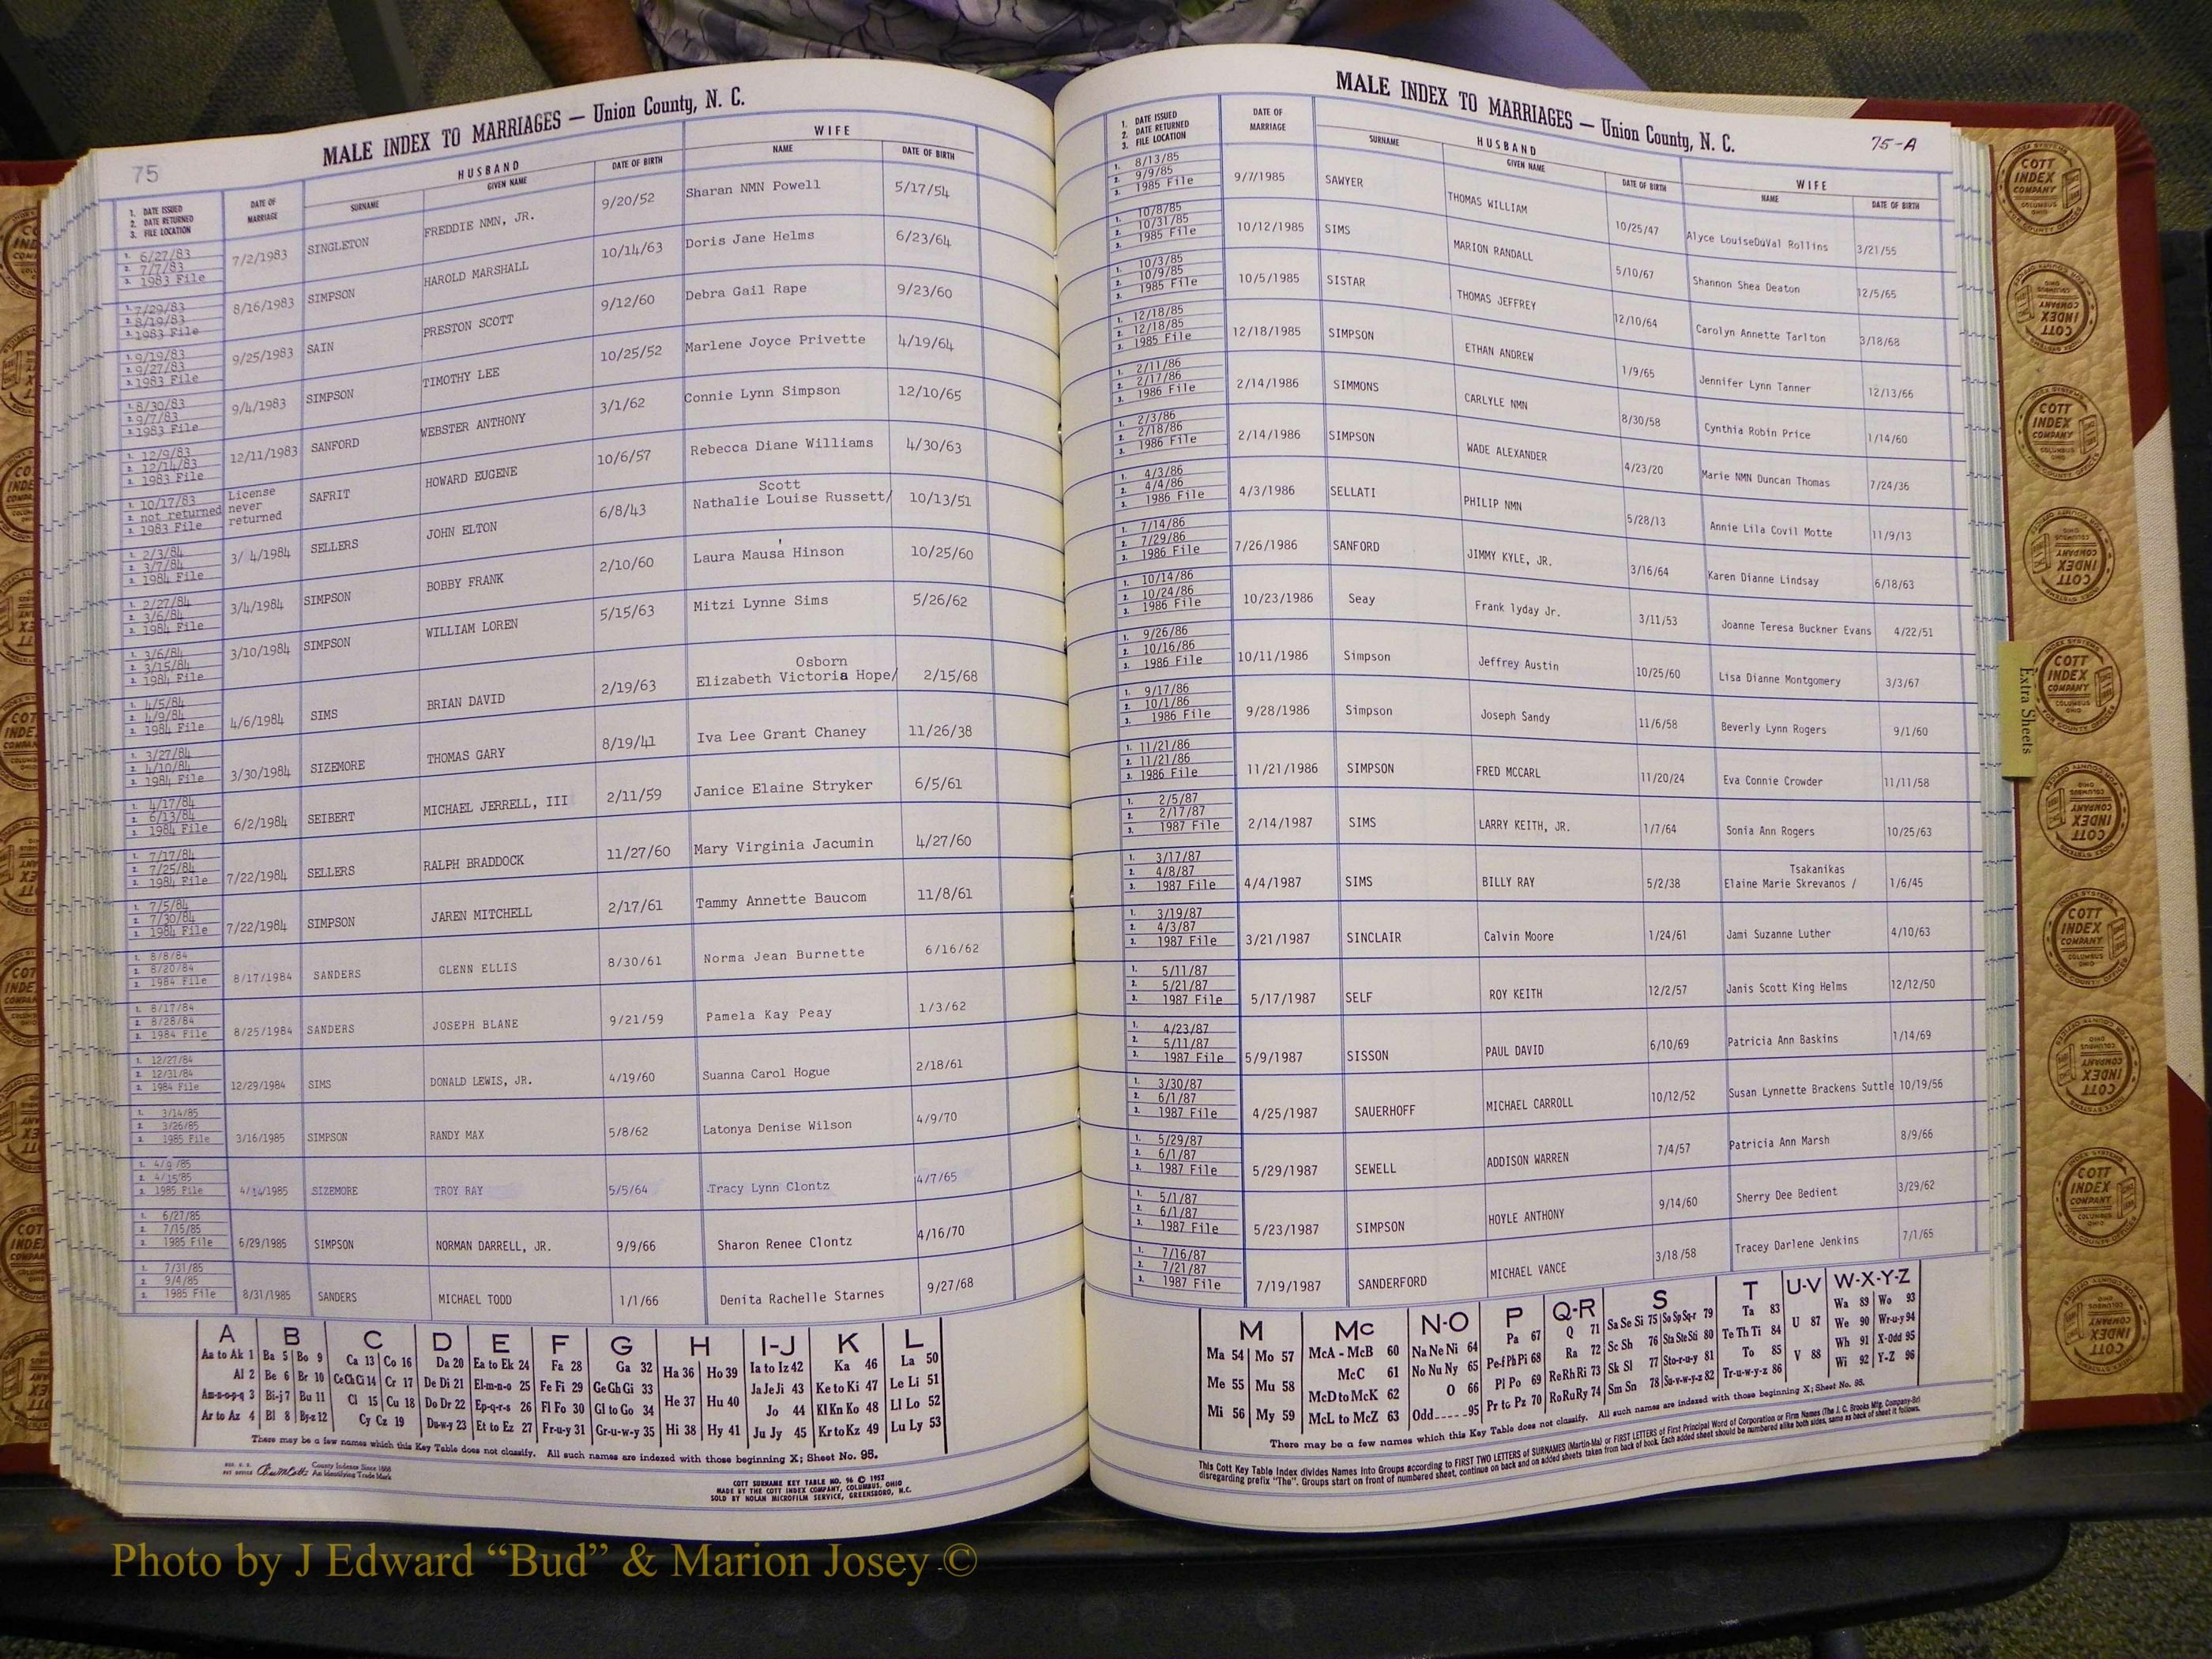 MALE INDEX TO MARRIAGES — Union County, N. C.
75
1. DATE ISSUED 2. DATE RETURNED 3. FILE LOCATION
DATE OF MARRIAGE
HUSBAND
SURNAME GIVEN NAME DATE OF BIRTH
WIFE
NAME DATE OF BIRTH
1. 6/27/83 2. 7/7/83 3. 1983 File 7/2/1983 SINGLETON FREDDIE NMN, JR. 9/20/52 Sharan NMN Powell 5/17/54
1. 7/29/83 2. 8/19/83 3. 1983 File 8/16/1983 SIMPSON HAROLD MARSHALL 10/14/63 Doris Jane Helms 6/23/64
1. 9/19/83 2. 9/27/83 3. 1983 File 9/25/1983 SAIN PRESTON SCOTT 9/12/60 Debra Gail Rape 9/23/60
1. 8/30/83 2. 9/7/83 3. 1983 File 9/4/1983 SIMPSON TIMOTHY LEE 10/25/52 Marlene Joyce Privette 4/19/64
1. 12/9/83 2. 12/14/83 3. 1983 File 12/11/1983 SANFORD WEBSTER ANTHONY 3/1/62 Connie Lynn Simpson 12/10/65
1. 10/17/83 2. not returned 3. 1983 File License never returned SAFRIT HOWARD EUGENE 10/6/57 Rebecca Diane Williams 4/30/63
1. 2/3/84 2. 3/7/84 3. 1984 File 3/ 4/1984 SELLERS JOHN ELTON 6/8/43 Nathalie Louise Russett/ Scott 10/13/51
1. 2/27/84 2. 3/6/84 3. 1984 File 3/4/1984 SIMPSON BOBBY FRANK 2/10/60 Laura Mausa' Hinson 10/25/60
1. 3/6/84 2. 3/15/84 3. 1984 File 3/10/1984 SIMPSON WILLIAM LOREN 5/15/63 Mitzi Lynne Sims 5/26/62
1. 4/5/84 2. 4/9/84 3. 1984 File 4/6/1984 SIMS BRIAN DAVID 2/19/63 Elizabeth Victoria Hope/ Osborn 2/15/68
1. 3/27/84 2. 4/10/84 3. 1984 File 3/30/1984 SIZEMORE THOMAS GARY 8/19/41 Iva Lee Grant Chaney 11/26/38
1. 4/17/84 2. 6/13/84 3. 1984 File 6/2/1984 SEIBERT MICHAEL JERRELL, III 2/11/59 Janice Elaine Stryker 6/5/61
1. 7/17/84 2. 7/25/84 3. 1984 File 7/22/1984 SELLERS RALPH BRADDOCK 11/27/60 Mary Virginia Jacumin 4/27/60
1. 7/5/84 2. 7/30/84 3. 1984 File 7/22/1984 SIMPSON JAREN MITCHELL 2/17/61 Tammy Annette Baucom 11/8/61
1. 8/8/84 2. 8/20/84 3. 1984 File 8/17/1984 SANDERS GLENN ELLIS 8/30/61 Norma Jean Burnette 6/16/62
1. 8/17/84 2. 8/28/84 3. 1984 File 8/25/1984 SANDERS JOSEPH BLANE 9/21/59 Pamela Kay Peay 1/3/62
1. 12/27/84 2. 12/31/84 3. 1984 File 12/29/1984 SIMS DONALD LEWIS, JR. 4/19/60 Suanna Carol Hogue 2/18/61
1. 3/14/85 2. 3/26/85 3. 1985 File 3/16/1985 SIMPSON RANDY MAX 5/8/62 Latonya Denise Wilson 4/9/70
1. 4/9/85 2. 4/15/85 3. 1985 File 4/14/1985 SIZEMORE TROY RAY 5/5/64 Tracy Lynn Clontz 4/7/65
1. 6/27/85 2. 7/15/85 3. 1985 File 6/29/1985 SIMPSON NORMAN DARRELL, JR. 9/9/66 Sharon Renee Clontz 4/16/70
1. 7/31/85 2. 9/4/85 3. 1985 File 8/31/1985 SANDERS MICHAEL TODD 1/1/66 Denita Rachelle Starnes 9/27/68
A B C D E F G H I-J K L
Aa to Ak 1 Ba 5 Bo 9 Ca 13 Co 16 Da 20 Ea to Ek 24 Fa 28 Ga 32 Ha 36 Ho 39 Ia to Iz 42 Ka 46 La 50
Al 2 Be 6 Br 10 Ce Ch Ci 14 Cr 17 De Di 21 El-m-n-o 25 Fe Fi 29 Ge Gh Gi 33 He 37 Hu 40 Ja Je Ji 43 Ke to Ki 47 Le Li 51
Am-n-o-p-q 3 Bi-j 7 Bu 11 Cl 15 Cu 18 Do Dr 22 Ep-q-r-s 26 Fl Fo 30 Gl to Go 34 Jo 44 Kl Kn Ko 48 Ll Lo 52
Ar to Az 4 Bl 8 By-z 12 Cy Cz 19 Du-w-y 23 Et to Ez 27 Fr-u-y 31 Gr-u-w-y 35 Hi 38 Hy 41 Ju Jy 45 Kr to Kz 49 Lu Ly 53
There may be a few names which this Key Table does not classify. All such names are indexed with those beginning X; Sheet No. 95.
County Indexes Since 1888
An Identifying Trade Mark
COTT SURNAME KEY TABLE NO. 96 © 1952
MADE BY THE COTT INDEX COMPANY, COLUMBUS, OHIO
SOLD BY NOLAN MICROFILM SERVICE, GREENSBORO, N.C.
MALE INDEX TO MARRIAGES — Union County, N. C.
75-A
1. DATE ISSUED 2. DATE RETURNED 3. FILE LOCATION
DATE OF MARRIAGE
HUSBAND
SURNAME GIVEN NAME DATE OF BIRTH
WIFE
NAME DATE OF BIRTH
1. 8/13/85 2. 9/9/85 3. 1985 File 9/7/1985 SAWYER THOMAS WILLIAM 10/25/47 Alyce LouiseDuVal Rollins 3/21/55
1. 10/8/85 2. 10/31/85 3. 1985 File 10/12/1985 SIMS MARION RANDALL 5/10/67 Shannon Shea Deaton 12/5/65
1. 10/3/85 2. 10/9/85 3. 1985 File 10/5/1985 SISTAR THOMAS JEFFREY 12/10/64 Carolyn Annette Tarlton 3/18/68
1. 12/18/85 2. 12/18/85 3. 1985 File 12/18/1985 SIMPSON ETHAN ANDREW 1/9/65 Jennifer Lynn Tanner 12/13/66
1. 2/11/86 2. 2/17/86 3. 1986 File 2/14/1986 SIMMONS CARLYLE NMN 8/30/58 Cynthia Robin Price 1/14/60
1. 2/3/86 2. 2/18/86 3. 1986 File 2/14/1986 SIMPSON WADE ALEXANDER 4/23/20 Marie NMN Duncan Thomas 7/24/36
1. 4/3/86 2. 4/4/86 3. 1986 File 4/3/1986 SELLATI PHILIP NMN 5/28/13 Annie Lila Covil Motte 11/9/13
1. 7/14/86 2. 7/29/86 3. 1986 File 7/26/1986 SANFORD JIMMY KYLE, JR. 3/16/64 Karen Dianne Lindsay 6/18/63
1. 10/14/86 2. 10/24/86 3. 1986 File 10/23/1986 Seay Frank lyday Jr. 3/11/53 Joanne Teresa Buckner Evans 4/22/51
1. 9/26/86 2. 10/16/86 3. 1986 File 10/11/1986 Simpson Jeffrey Austin 10/25/60 Lisa Dianne Montgomery 3/3/67
1. 9/17/86 2. 10/1/86 3. 1986 File 9/28/1986 Simpson Joseph Sandy 11/6/58 Beverly Lynn Rogers 9/1/60
1. 11/21/86 2. 11/21/86 3. 1986 File 11/21/1986 SIMPSON FRED MCCARL 11/20/24 Eva Connie Crowder 11/11/58
1. 2/5/87 2. 2/17/87 3. 1987 File 2/14/1987 SIMS LARRY KEITH, JR. 1/7/64 Sonia Ann Rogers 10/25/63
1. 3/17/87 2. 4/8/87 3. 1987 File 4/4/1987 SIMS BILLY RAY 5/2/38 Elaine Marie Skrevanos / Tsakanikas 1/6/45
1. 3/19/87 2. 4/3/87 3. 1987 File 3/21/1987 SINCLAIR Calvin Moore 1/24/61 Jami Suzanne Luther 4/10/63
1. 5/11/87 2. 5/21/87 3. 1987 File 5/17/1987 SELF ROY KEITH 12/2/57 Janis Scott King Helms 12/12/50
1. 4/23/87 2. 5/11/87 3. 1987 File 5/9/1987 SISSON PAUL DAVID 6/10/69 Patricia Ann Baskins 1/14/69
1. 3/30/87 2. 6/1/87 3. 1987 File 4/25/1987 SAUERHOFF MICHAEL CARROLL 10/12/52 Susan Lynnette Brackens Suttle 10/19/56
1. 5/29/87 2. 6/1/87 3. 1987 File 5/29/1987 SEWELL ADDISON WARREN 7/4/57 Patricia Ann Marsh 8/9/66
1. 5/1/87 2. 6/1/87 3. 1987 File 5/23/1987 SIMPSON HOYLE ANTHONY 9/14/60 Sherry Dee Bedient 3/29/62
1. 7/16/87 2. 7/21/87 3. 1987 File 7/19/1987 SANDERFORD MICHAEL VANCE 3/18/58 Tracey Darlene Jenkins 7/1/65
M Mc N-O P Q-R S T U-V W-X-Y-Z
Ma 54 Mo 57 McA - McB 60 Na Ne Ni 64 Pa 67 Q 71 Sa Se Si 75 So Sp Sq-r 79 Ta 83 U 87 Wa 89 Wo 93
McC 61 No Nu Ny 65 Pe-f Ph Pi 68 Ra 72 Sc Sh 76 Sta Ste Sti 80 Te Th Ti 84 We 90 Wr-u-y 94
Me 55 Mu 58 McD to McK 62 O 66 Pl Po 69 Re Rh Ri 73 Sk Sl 77 Sto-r-u-y 81 To 85 V 88 Wh 91 X-Odd 95
Mi 56 My 59 McL to McZ 63 Odd 95 Pr to Pz 70 Ro Ru Ry 74 Sm Sn 78 Su-v-w-y-z 82 Tr-u-w-y-z 86 Wi 92 Y-Z 96
There may be a few names which this Key Table does not classify. All such names are indexed with those beginning X; Sheet No. 95.
This Cott Key Table Index divides Names Into Groups according to FIRST TWO LETTERS of SURNAMES (Martin-Ma) or FIRST LETTERS of First Principal Word of Corporation or Firm Names (The J. C. Brooks Mfg. Company-Br)
disregarding prefix "The". Groups start on front of numbered sheet, continue on back and on added sheets taken from back of book. Each added sheet should be numbered alike both sides, same as back of sheet it follows.
Extra Sheets
COTT INDEX COMPANY COLUMBUS OHIO
INDEX SYSTEMS FOR COUNTY OFFICES
Photo by J Edward “Bud” & Marion Josey ©